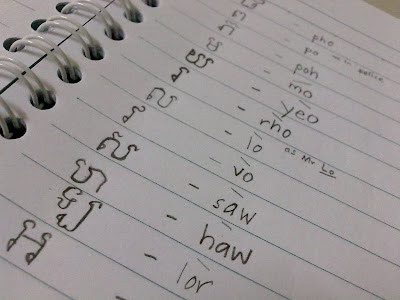 ផ - pho
ព - po - in police
ភ - poh
ម - mo
យ - yeo
រ - rho
ល - lo as Mr Lo
វ - vo
ស - saw
ហ - haw
ឡ - lor
អ